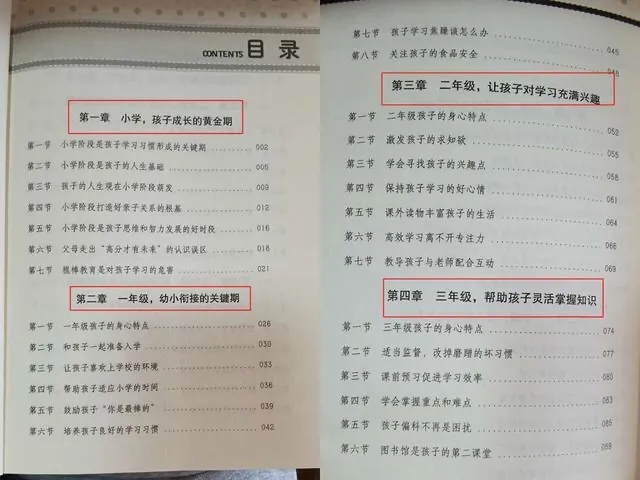 CONTENTS 目录
第一章 小学，孩子成长的黄金期
第一节 小学阶段是孩子学习习惯形成的关键期 002
第二节 小学阶段是孩子的人生基础 005
第三节 孩子的人生观在小学阶段萌发 009
第四节 小学阶段打造好亲子关系的根基 012
第五节 小学阶段是孩子思维和智力发展的好时段 016
第六节 父母走出“高分才有未来”的认识误区 018
第七节 棍棒教育是对孩子学习的危害 021
第二章 一年级，幼小衔接的关键期
第一节 一年级孩子的身心特点 026
第二节 和孩子一起准备入学 030
第三节 让孩子喜欢上学校的环境 033
第四节 帮助孩子适应小学的时间 036
第五节 鼓励孩子“你是最棒的” 039
第六节 培养孩子良好的学习习惯 042
第七节 孩子学习焦躁该怎么办 045
第八节 关注孩子的食品安全 048
第三章 二年级，让孩子对学习充满兴趣
第一节 二年级孩子的身心特点 052
第二节 激发孩子的求知欲 055
第三节 学会寻找孩子的兴趣点 058
第四节 保持孩子学习的好心情 061
第五节 课外读物丰富孩子的生活 063
第六节 高效学习离不开专注力 066
第七节 教导孩子与老师配合互动 069
第四章 三年级，帮助孩子灵活掌握知识
第一节 三年级孩子的身心特点 074
第二节 适当监督，改掉磨蹭的坏习惯 077
第三节 课前预习促进学习效率 080
第四节 学会掌握重点和难点 083
第五节 孩子偏科不再是困扰 085
第六节 图书馆是孩子的第二课堂 089